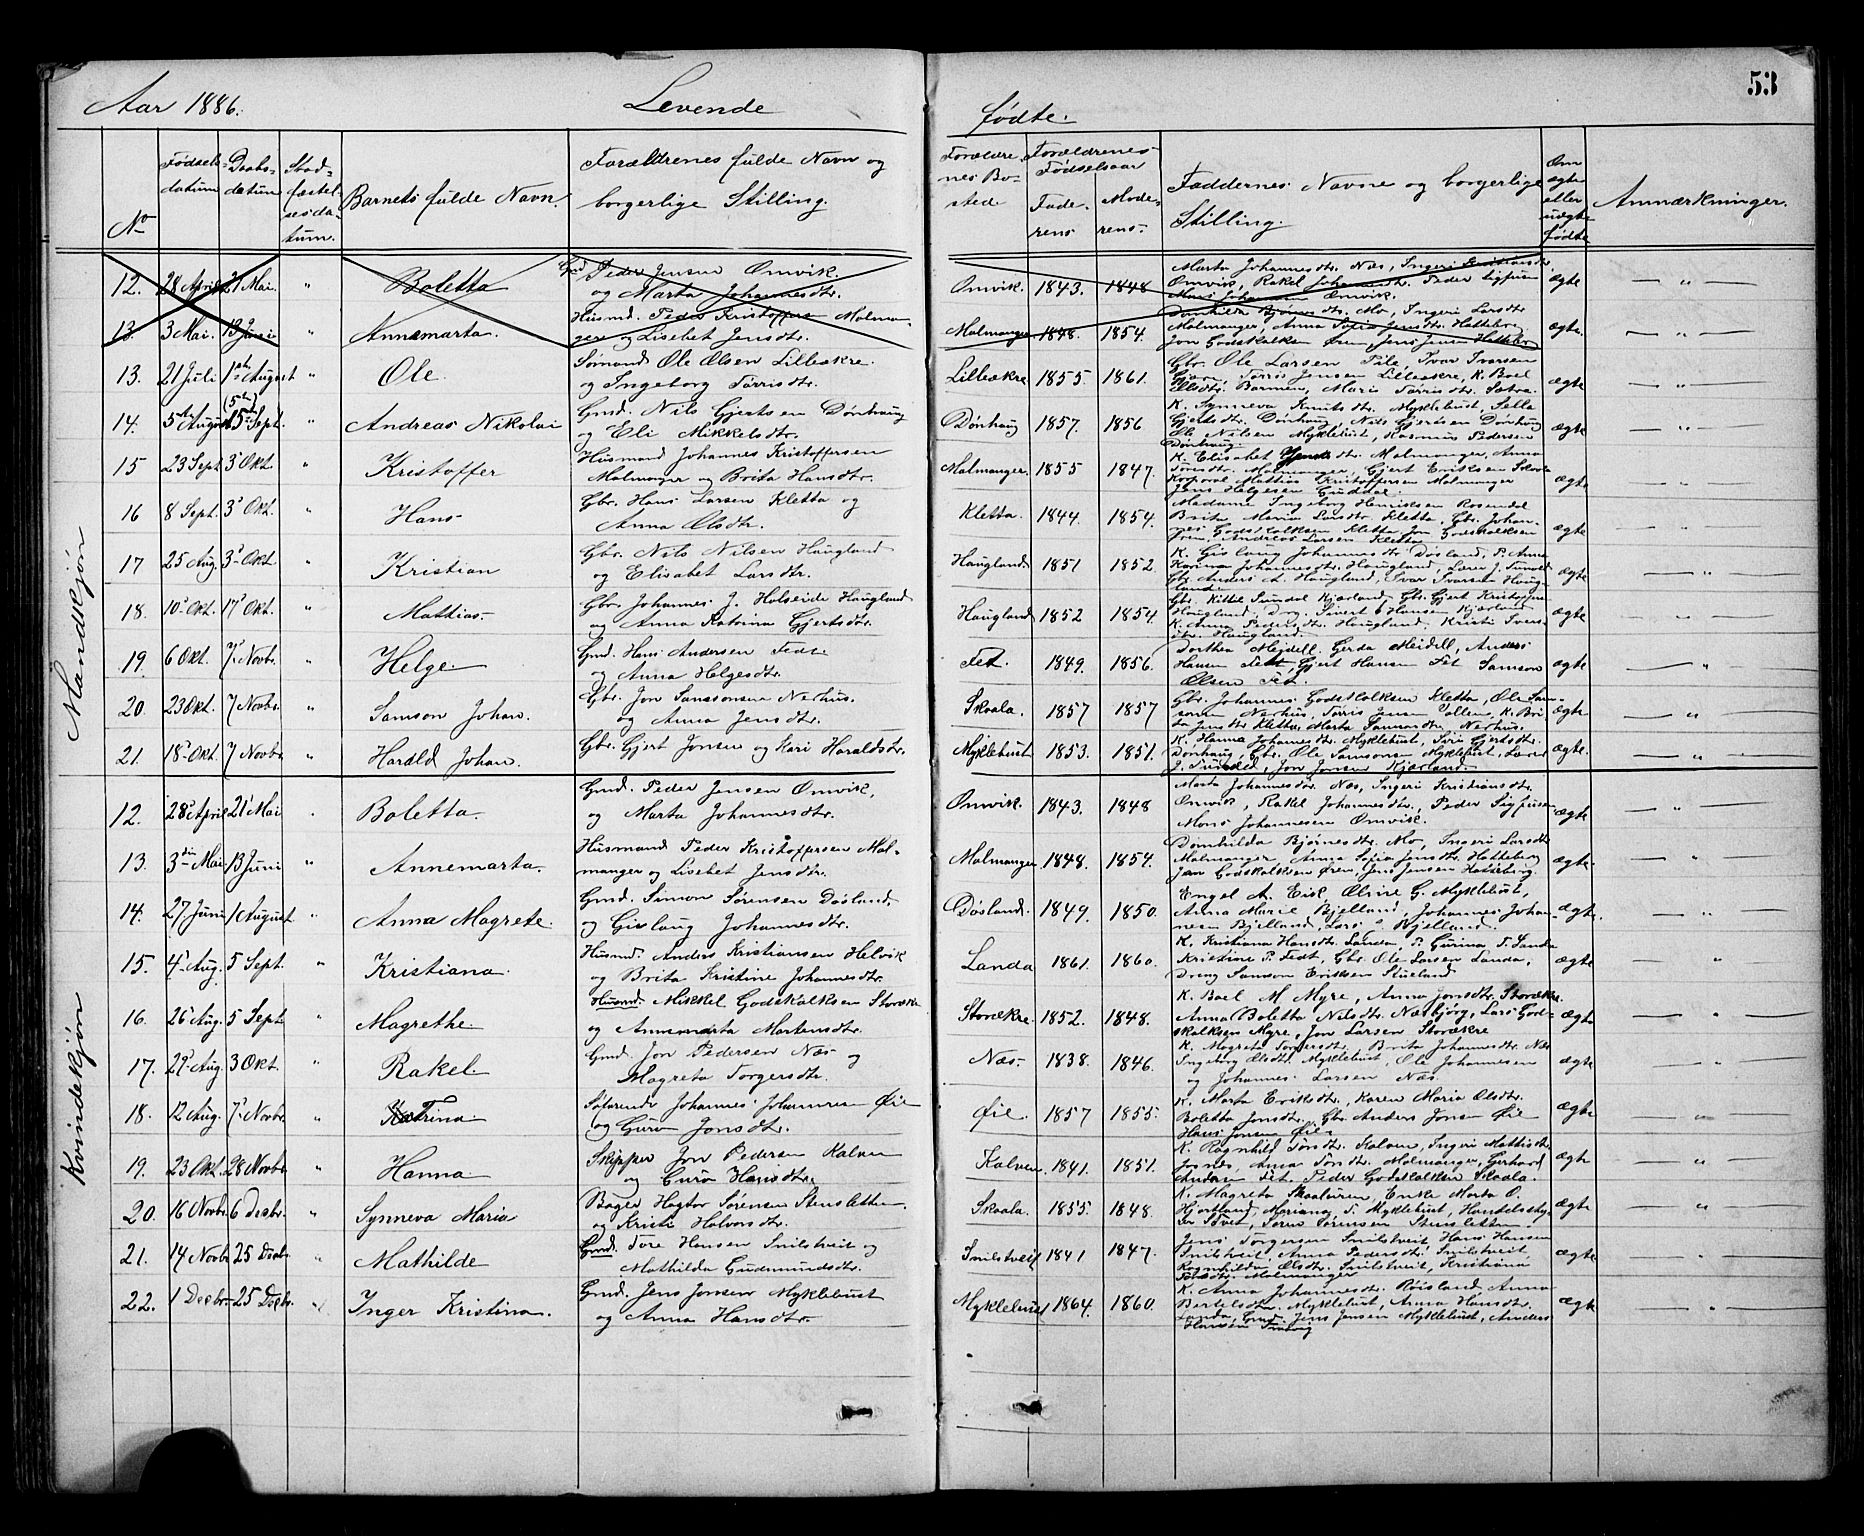 53
Aar 1886. Levende fødte.
No
Fødsels-datum
Daabs-datum
Stad-fæstel-sesda-tum.
Barnets fulde Navn.
Forældrenes fulde Navn og borgerlige Stilling.
Forældrenes Bo-sted
Forældrenes Fødselsaar
Fade-rens
Mode-rens
Faddernes Navne og borgerlige Stilling.
Om ægte eller uægte fødte
Anmærkninger.
Mandkjøn
12. 28 April 21 Mai. " Boletta Gmd. Peder Jensen Omvik. og Marta Johannesdtr. Omvik. 1843. 1848 Marta Johannesdtr. Næs, Ingeri Kristiansdtr. Omvik, Rakel Johannesdtr. Peder Mons Johannesen Omvik. ægte "
13. 3 Mai. 13 Juni " Annemarta. Husmd. Peder Kristoffers. Malmanger og Lisebet Jensdtr. Malmanger 1848. 1854. Bjørnesdtr. Mo, Ingeri Larsdtr Malmanger, Anna Sofia Jensdtr. Hatteberg Jon Godskalksen Øren, Jens Jensen Hatteberg ægte. "
13. 21 Juli 1ste August " Ole. Sømand Ole Olsen Lilleækre. og Ingeborg Torrisdtr. Lilleækre 1855. 1861. Gbr. Ole Larsen Ivar Ivarsen Torris Jensen Lilleækre, K. Boel Olsdtr. Marie Torrisdtr. ægte "
14. 5 August (5te) 5 Sept. " Andreas Nikolai Gmd. Nils Gjertsen Dønhaug og Eli Mikkelsdtr. Dønhaug 1857. 1856 K. Synneva Knutsdtr. Myklebust, Sella Gjertsdtr. Dønhaug, Nils Gjertsen Dønhaug Ole Nilsen Myklebust, Rasmus Pedersen Dønhaug. ægte "
15 23 Sept. 3 Okt " Kristoffer Husmand Johannes Kristoffersen Malmanger og Brita Hansdtr. Malmanger. 1855 1847. K. Elisabet Malmanger, Anna Malmanger, Gjert Eriksen Korporal Mattias Kristoffersen Malmanger Jens Helgesen Guddal. ægte "
16 8 Sept. 3 Okt. " Hans Gbr. Hans Larsen Kletta og Anna Olsdtr. Kletta. 1844. 1854. Madame Ingeborg Henriksen Rosendal Brita Maria Larsdtr. Kletta, Gbr. Johannes Godskalksen Kletta, Jon Godskalksen Andreas Larsen Kletta ægte "
17 25 Aug. 3 Okt " Kristian Gbr. Nils Nilsen Haugland og Elisabet Larsdtr. Haugland 1851 1852. K. Gislaug Johannesdtr. Døsland, P. Anna Karina Johannesdtr. Haugland, Lærer J. Gbr. Anders A. Haugland, Ivar Ivarsen Haugland ægte "
18. 10 Okt. 17 Okt. " Mattias. Gbr. Johannes J. Halseide Haugland og Anna Katrina Gjertsdtr. Haugland 1852 1854. Gbr. Kittil Sundal Kjærland, Gbr. Gjert Haugland, Drg. Sivert Hansen Kjærland K. Anna Pedersdtr. Haugland, Kristi Haugland. ægte "
19. 6 Okt. 7 Novbr. " Helge. Gmd. Hans Andersen Fedt og Anna Helgesdtr. Fet. 1849. 1856. Dorthea Mejdell, Gerda Meidell, Anders Hansen Fet, Gjert Hansen Fet Samson Olsen Fet. ægte "
20 23 Okt. 7 Novbr. " Samson Johan. Gbr. Jon Samsonsen Nerhus. og Anna Jensdtr. Skaala. 1857 1857 Gbr. Johannes Godskalksen Kletta, Ole Samsonsen Nerhus, Torris Jensen K. Brita Jensdtr. Kletta, Marta Samsonsdtr. Nerhus. ægte "
21. 18 Okt. 7 Novbr. " Harald Johan. Gbr. Gjert Jonsen og Kari Haraldsdtr. Myklebust 1853. 1851. K. Hanna Johannesdtr. Myklebust, Siri Gjertsdtr. Dønhaug, Gbr. Ole Samsonsen Myklebust, Lærer J. Jon Jonsen Kjærland. ægte. "
Kvindekjøn
12. 28 April 21 Mai " Boletta. Gmd. Peder Jensen Omvik, og Marta Johannesdtr. Omvik. 1843. 1848 Marta Johannesdtr. Næs, Ingeri Kristiansdtr. Omvik, Rakel Johannesdtr., Peder Mons Johannesen Omvik. ægte "
13. 3die Mai. 13 Juni " Annemarta. Husmand Peder Kristoffersen Malmanger og Lisebet Jensdtr. Malmanger 1848. 1854. Bjørnesdtr. Mo, Ingeri Larsdtr Malmanger, Anna Sofia Jensdtr. Hatteberg Jon Godskalksen Øren, Jens Jensen Hatteberg. ægte. "
14. 27 Juni 1 August " Anna Magrete. Gmd. Simon Sørensen Døsland og Gislaug Johannesdtr. Døsland. 1849. 1850. Engel A. Eik, Oline G. Myklebust, Anna Marie Bjelland, Johannes Johannesen Bjelland, Lars Bjelland. ægte. "
15. 4 Aug. 5 Sept. " Kristiana. Husmd. Anders Kristiansen Helvik og Brita Kristine Johannesdtr. Landa 1861. 1860. K. Kristiana Hansdtr. Landa, P. Gurina T. Landa Kristine P. Fedt, Gbr. Ole Larsen Landa, Dreng Samson Eriksen Stueland ægte "
16. 26 Aug. 5 Sept " Magrethe. Husmd. Mikkel Godskalksen Storækre og Annemarta Mortensdtr. Storækre. 1852. 1848. K. Boel M Myre, Anna Jonsdtr. Storækre Anna Boletta Nilsdtr. Næsbjørg, Lars Godskalksen Myre, Jon Larsen Storækre ægte "
17. 29 Aug. 3 Okt. " Rakel Gmd. Jon Pedersen Næs og Magreta Torgersdtr. Næs. 1838. 1846. K. Magreta Torgersdtr., Brita Johannesdtr. Næs Ingeborg Olsdtr. Myklebust, Ole Johannesen og Johannes Larsen Næs. ægte "
18. 12 Aug. 7 Novbr. " Katrina. Søfarende Johannes Johannesen Øie og Guro Jonsdtr. Øie. 1857 1855. K. Marta Eriksdtr., Karen Maria Olsdtr. Boletta Jonsdtr. Gbr. Anders Jonsen Øie Hans Jonsen Øie. ægte "
19. 23 Okt. 28 Novbr. " Hanna. Skipper Jon Pedersen Kalven og Guro Hansdtr. Kalven. 1841. 1851. K. Ragnhild Tøndtr. Kalven, Ingeri Mattisdtr. Anna Malmanger, Gerhard Andersen Fet, Peder Godskalksen Skaala. ægte "
20. 16 Novbr. 6 Decbr. " Synneva Maria Bager Hagtor Sørensen Stensletten og Kristi Halvorsdtr. Skaala. 1855. 1848. K. Magreta Skaaluren, Enke Marta O. Hjortland, Mariana T. Myklebust, Tvet, Søren Sørensen Stensletten ægte "
21. 14 Novbr. 25 Decbr. " Mathilde Gmd. Tore Hansen Snilstveit og Mathilda Gudmundsdtr. Snilstveit 1841 1847. Jens Torgersen Snilstveit Hans Hansen Snilstveit, Anna Pedersdtr. Snilstveit, Ragnhilda Olsdtr. Snilstveit, Kristiana Malmanger ægte "
22. 1 Decbr. 25 Decbr. " Inger Kristina. Gmd. Jens Jonsen Myklebust og Anna Hansdtr. Myklebust 1864. 1860. K. Anna Johannesdtr. Røisland, Anna Bertelsdtr. Myklebust, Anna Hansdtr. Landa, Gmd. Jens Jensen Myklebust, Anders Hansen ægte "